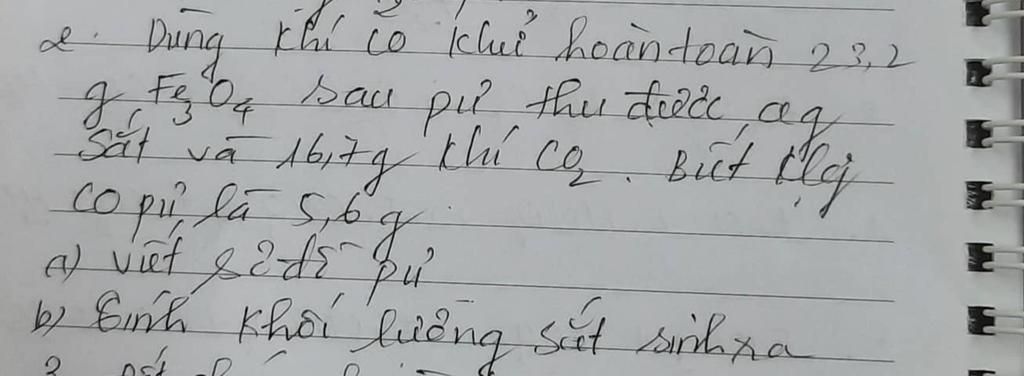 2. Dùng khí CO khử hoàn toàn 23,2
g Fe3O4 sau pứ thu được a g
sắt và 16,7g khí CO2. Biết klg
CO pứ là 5,6 g
a) viết sơ đồ pứ
b) Tính khối lượng sắt sinh ra